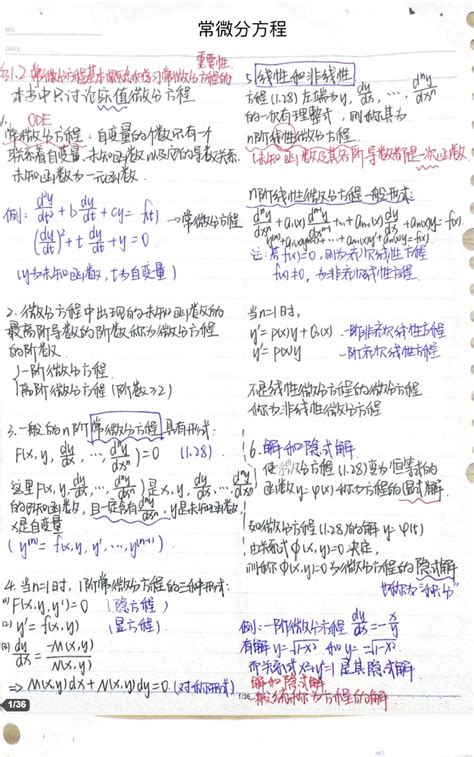 常微分方程
§1.2 常微分方程基本概念和学习常微分方程的
重要性
本书中只讨论实值微分方程
1. ODE
常微分方程：自变量的个数只有一个
联系着自变量、未知函数以及它的导数关系.
未知函数为一元函数.
例: d²y/dt² + b dy/dt + cy = f(t) → 常微分方程
(dy/dt)² + t dy/dt + y = 0
(y为未知函数, t为自变量)
2. 微分方程中出现的未知函数的
最高阶导数的阶数称为微分方程
的阶数.
一阶微分方程
高阶微分方程 (阶数≥2)
3. 一般的n阶常微分方程具有形式:
F(x, y, dy/dx, …, dⁿy/dxⁿ) = 0 (1.28)
这里F(x, y, dy/dx, …, dⁿy/dxⁿ)是x, y, dy/dx, …, dⁿy/dxⁿ
的已知函数, 且一定含有dⁿy/dxⁿ, y是未知函数,
x是自变量
(y⁽ⁿ⁾ = f(x, y, y', …, y⁽ⁿ⁻¹⁾)
4. 当n=1时, 1阶常微分方程的三种形式:
(1) F(x, y, y') = 0 (隐方程)
(2) y' = f(x, y) (显方程)
(3) dy/dx = -M(x,y)/N(x,y)
⇒ M(x,y)dx + N(x,y)dy = 0 (对称形式)
1/36
5. 线性和非线性
方程(1.28)左端为y, dy/dx, …, dⁿy/dxⁿ
的一次有理整式, 则称其为
n阶线性微分方程.
(未知函数及其各阶导数都是一次函数)
n阶线性微分方程一般形式:
dⁿy/dxⁿ + a₁(x) dⁿ⁻¹y/dxⁿ⁻¹ + … + aₙ₋₁(x) dy/dx + aₙ(x)y = f(x)
y⁽ⁿ⁾ + a₁(x)y⁽ⁿ⁻¹⁾ + … + aₙ₋₁(x)y' + aₙ(x)y = f(x)
注: 若f(x)=0, 则为齐次线性方程
f(x)≠0, 为非齐次线性方程.
当n=1时,
y' = p(x)y + Q(x) 一阶非齐次线性方程
y' = p(x)y 一阶齐次线性方程
不是线性微分方程的微分方程
称为非线性微分方程
6. 解和隐式解
使微分方程(1.28)变为恒等式的
函数y = φ(x)称为方程的显式解.
如微分方程(1.28)的解y = φ(x)
由关系式Φ(x, y)=0决定,
则称Φ(x, y)=0为微分方程的隐式解
例: 一阶微分方程 dy/dx = -x/y
有解y = √1-x² 和 y = -√1-x²
而关系式x²+y²=1是其隐式解
1/36
解和隐式解